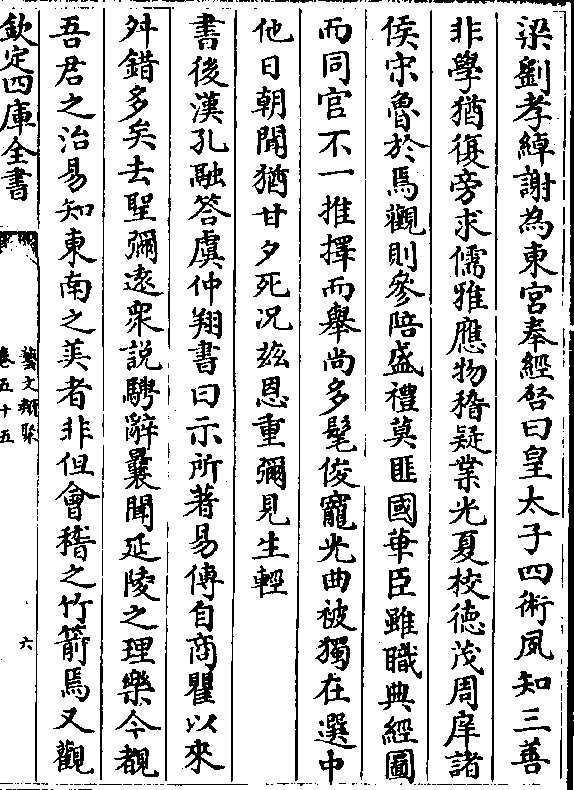 梁劉孝綽謝為東宮奉經啓曰皇太子四術夙知三善
非學猶復旁求儒雅應物稽疑業光夏校德茂周庠諸
侯宋魯於焉觀則參陪盛禮莫匪國華臣雖職典經圖
而同官不一推擇而舉尚多髦俊寵光曲被獨在選中
他日朝聞猶甘夕死况兹恩重彌見生輕
書後漢孔融答虞仲翔書曰示所著易傳自商瞿以來
舛錯多矣去聖彌逺衆説騁辭曩聞延陵之理樂今覩
吾君之治易知東南之美者非但會稽之竹箭焉又觀
欽定四庫全書
藝文類聚
卷五十五
六